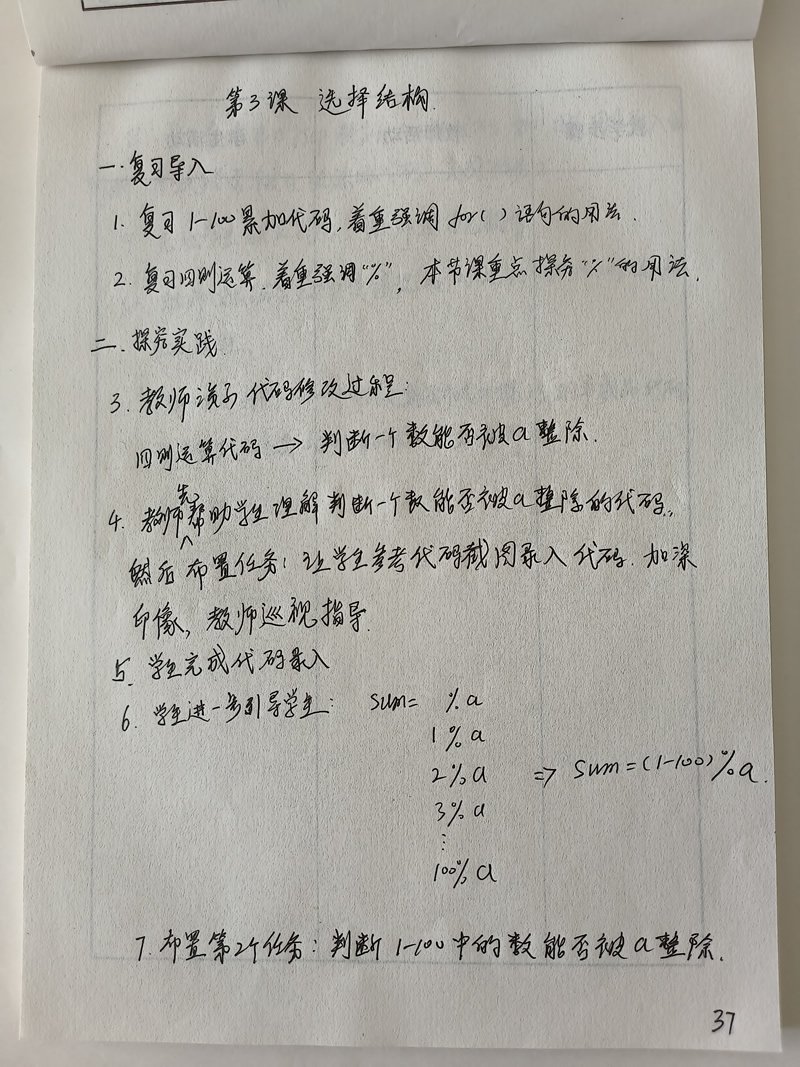 第3课 选择结构.
一.复习导入
1. 复习1-100累加代码,着重强调for( )语句的用法.
2. 复习四则运算.着重强调"%", 本节课重点探究"%"的用法.
二.探究实践
3. 教师演示代码修改过程:
四则运算代码 → 判断一个数能否被a整除.
4. 教师先帮助学生理解判断一个数能否被a整除的代码.,
然后布置任务:让学生参考代码截图录入代码.加深
印像,教师巡视指导.
5. 学生完成代码录入
6. 学生进一步引导学生: sum= %a
1%a
2%a => sum=(1-100)%a.
3%a
⋮
100%a
7.布置第2个任务:判断1-100中的数能否被a整除.
37